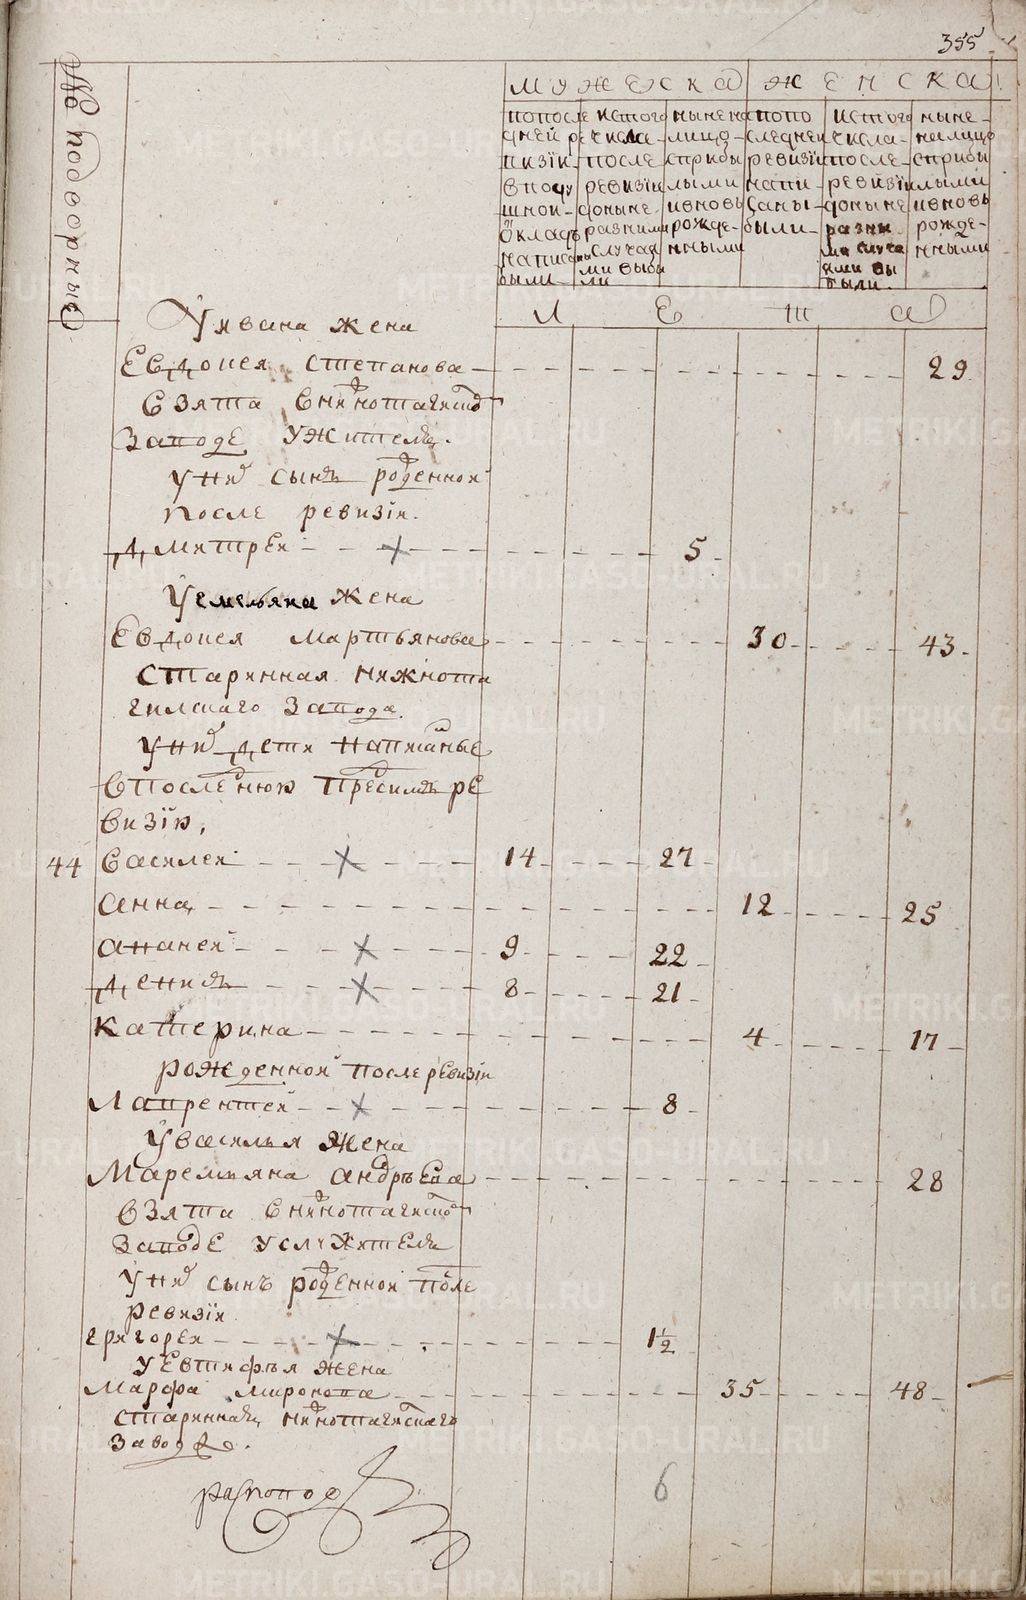 355
№ подворныя
мужеска
женска
попосле
дней ре
визіи
вподу
шной
окладъ
написаны
были
истого
числа
после
ревизіи
доныне
разними
случая
ми выбы
ли
ныне на
лицо
сприбы
лыми
ивновь
рожде-
нными
попо
следней
ревизіи
напи-
саны
были
истого
числа
после-
ревизіи
доныне
разны
ми случа
ями вы
были
ныне-
налицо
сприбы
лыми
ивновь
рожде-
нными
Л Е Т А
У ивана жена
Евдокея степанова 29
взята внижнотагилском
заводе ужителя.
унихъ сынъ рожденной
после ревизіи.
Дмитрей 5
У емельяна жена
Евдокея мартьянова 30 43
старинная нижнота
гилскаго завода
унихъ дети написанные
впоследнюю пресимъ ре
визію,
44 василей 14 27
анна 12 25
ананей 9 22
денисъ 8 21
катерина 4 17
рожденной после ревизіи
лаврентей 8
У василья жена
Маремьяна андреева 28
взята внижнотагилском
заводе услужителя
унихъ сынъ рожденной после
ревизіи
григорей 1½
У Евтифья жена
Марфа миронова 35 48
стариннаѧ нижнотагилскаго
завода.
6